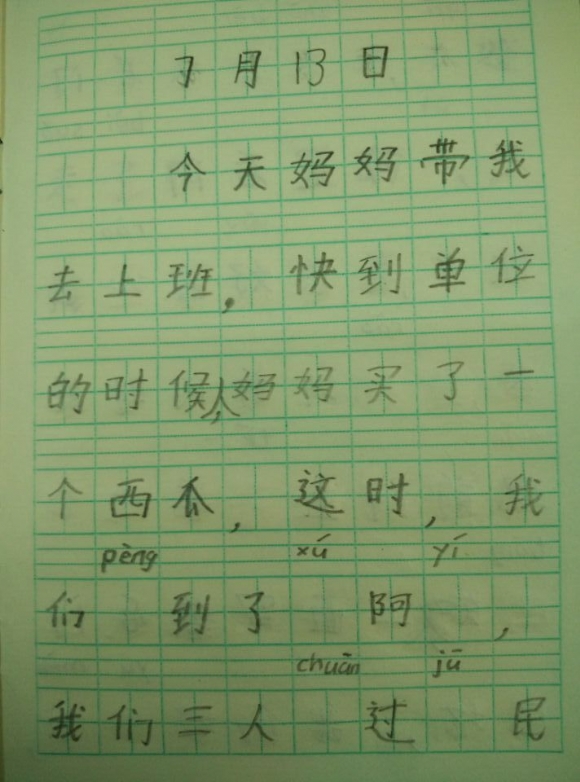 7月13日
今天妈妈带我
去上班，快到单位
的时候，妈妈买了一
个西瓜，这时，我
pèng xú yí
们 到了 阿 ，
chuān jū
我们三人 过 民